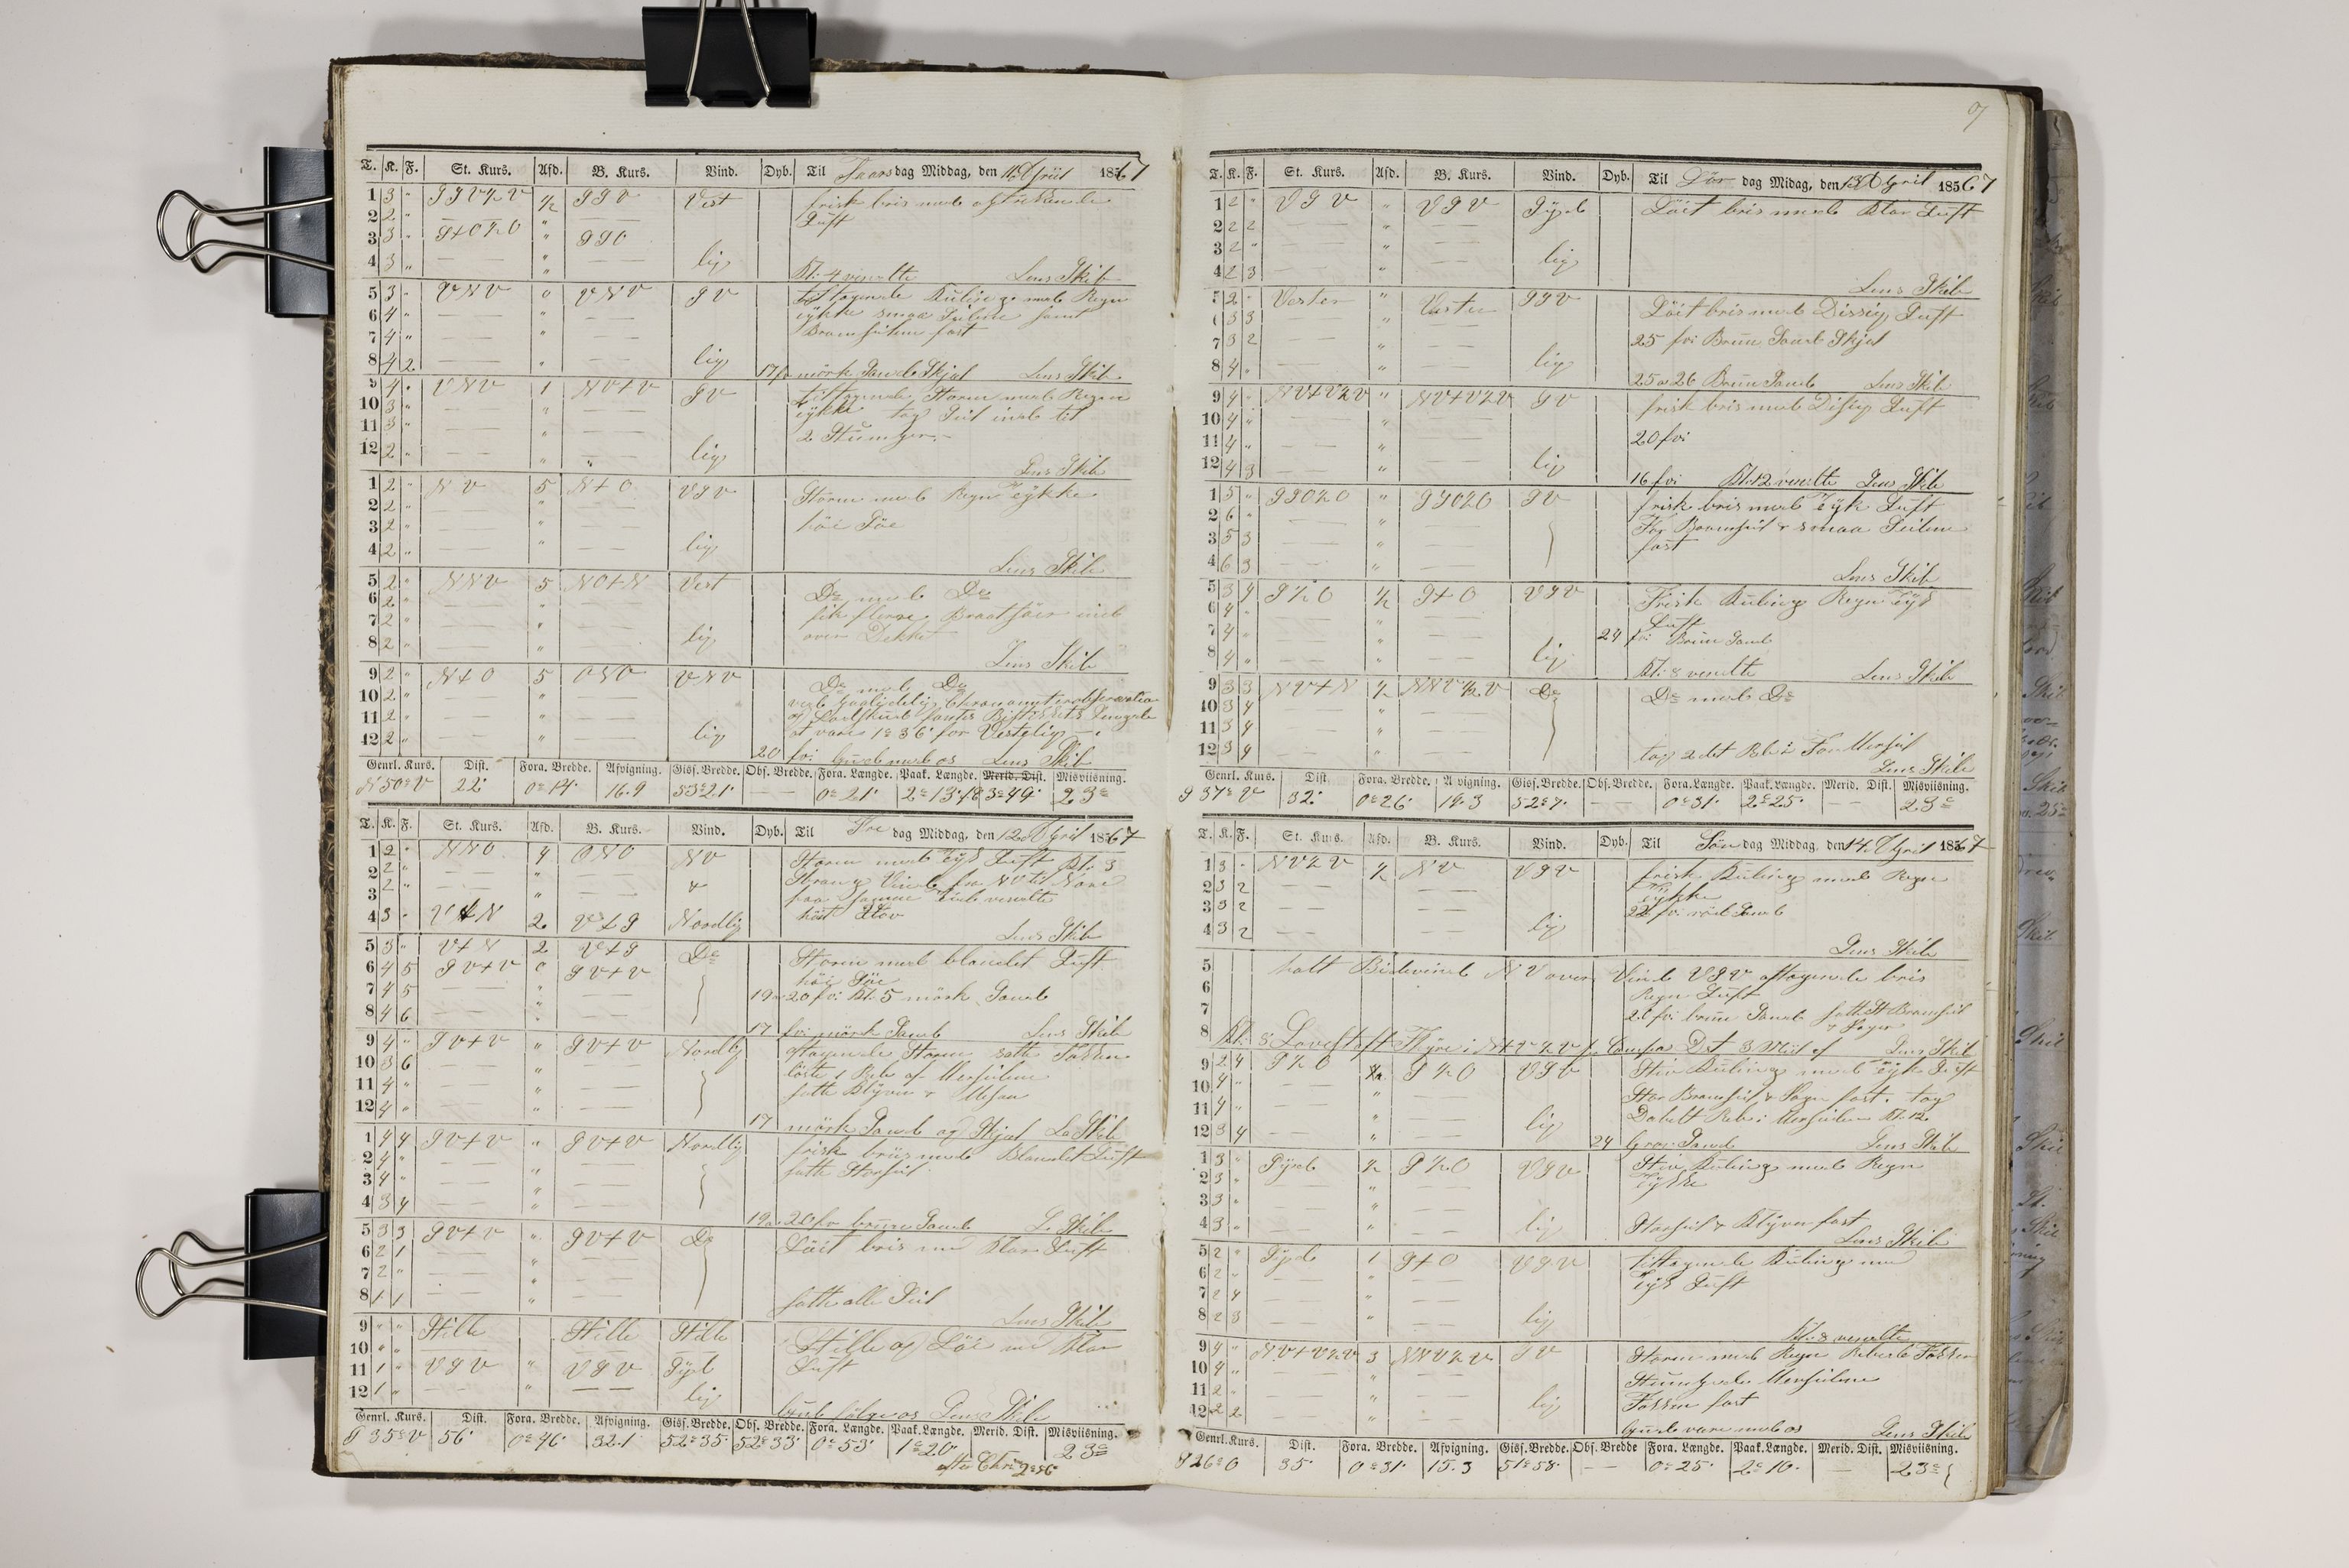 T. K. F. St. Kurs. Afd. B. Kurs. Vind. Dyb. Til Torsdag Middag, den 11. April 1867
1 3 " SSV½V ½ SSV Vest frisk bris med
2 2 " — — " — — Luft
3 3 " S+O½O " SSO
4 3 " — — " — — lig Kl: 4 vendte Lens Skib
5 3 " VNV " VNV SV tiltagende Kuling med Regn
6 4 " — — " — — tykke smaa Seilene samt
7 4 " — — " — — Bramseilene fast
8 4 2 — — " — — lig 17 fv mörk Sand Skjæl Lens Skib
9 4 " VNV 1 NV+V SV tiltagende Storm med Regn
10 3 " — — " — — tykke tog Seil ind til
11 3 " — — " — — 2 Stumper
12 2 " — — " " lig Lens Skib
1 2 " NV 5 N+O VSV Storm med Regn tykke
2 2 " — — " — —
3 2 " — — " — — höi Söe
4 2 " — — " — — lig Lens Skib
5 2 " NNV 5 NO+N Vest Do med Do
6 2 " — — " — — fik flere Braatsöer ind
7 2 " — — " — — over Dekket
8 2 " — — " — — lig Lens Skib
9 2 " N+O 5 ONO VNV Do med Do
10 2 " — — "
11 2 " — — " — —
12 2 " — — " — — lig at være 1° 36' for Vestelig
20 fv: Gud med os Lens Skib
Genrl. Kurs. Dist. Fora. Bredde. Afvigning. Gisf. Bredde. Obs. Bredde. Fora. Længde. Paak. Længde. Merid. Dist. Misviisning.
N 50° V 22' 0° 14' 16.9 53° 21' — — 0° 21' 2° 13' 3° 49' 23°
T. K. F. St. Kurs. Afd. B. Kurs. Vind. Dyb. Til Fredag Middag, den 12. April 1867
1 2 " NNO 4 ONO NV Storm med tyk Luft Kl: 3
2 2 " — — " — — sprang Vinden fra NV til Nord
3 2 " " — — paa samme Tid vendte
4 3 " V+N 2 V+S Nordlig
Lens Skib
5 3 " V+N 2 V+S Do Storm med blandet Luft
6 4 5 SV+V 0 SV+V höi Söe
7 4 5 — — " — — 19 a 20 fv: Kl: 5 mörk Sand
8 4 6 — — " — — 17 fv: mörk Sand Lens Skib
9 4 " SV+V " SV+V Nordlig aftagende Storm satte Fokken
10 3 6 — — " — — löste 1 Reb af Merseilene
11 4 " — — " — — satte Klyver & Mesan
12 4 " — — " — — 17 mörk Sand og Skjæl L. Skib
1 4 4 SV+V " SV+V Nordlig frisk briis med Blandet Luft
2 4 " — — " — — satte Storseil
3 4 " — — " — —
4 3 4 — — " — — 19 a 20 fv bruun Sand L. Skib
5 3 3 SV+V " SV+V Do Löit bris med Klar Luft
6 2 1 — — " — —
7 2 " — — " — —
8 1 1 — — " — — satte alle Seil Lens Skib
9 " " Stille Stille Stille Stille og Löi med Klar
10 " " — Luft
11 1 " VSV " VSV Syd
12 1 " — — " — — lig Gud fölge os Lens Skib
Genrl. Kurs. Dist. Fora. Bredde. Afvigning. Gisf. Bredde. Obs. Bredde. Fora. Længde. Paak. Længde. Merid. Dist. Misviisning.
S 35° V 56' 0° 46' 32.1 52° 35' 52° 33' 0° 53' 1° 20' 23°
efter Chr. 2° 56'
T. K. F. St. Kurs. Afd. B. Kurs. Vind. Dyb. Til Lördag Midag, den 13. April 1867
1 2 " VSV " VSV Syd Löit bris med Klar Luft
2 2 2 " — —
3 2 " — — " — — lig
4 2 3 — " — — Lens Skib
5 2 " Vester " Vester SSV Löit bris med Dissig Luft
6 3 3 — — " — —
7 3 2 — — " — — 25 fv: Bruun Sand Skjæl
8 4 " — — " — — lig 25 a 26 Bruun Sand Lens Skib
9 4 " NV+V½V " NV+V½V SV frisk bris med Disig Luft
10 4 " — — " — —
11 4 " — — " — — 20 fv:
12 4 3 — — " — — lig 16 fv: Kl: 12 vendte Lens Skib
1 5 " SSO½O " SSO½O SV frisk bris med tyk Luft
2 6 " — — " — — Bramseil & smaa Seilene
3 5 3 — — " — — fast
4 6 3 — — " — — Lens Skib
5 3 4 S½O ½ S+O VSV Frisk Kuling Regn tyk
6 4 " — — " — — Luft
7 4 " — — " — — 24 fv: Bruun Sand
8 4 " — — " — — lig Kl: 8 vendte Lens Skib
9 3 3 NV+N ½ NNV½V Do Do med Do
10 3 4 — — " — —
11 3 4 — — " — —
12 3 4 — — " — — tog 2det Reb i For Merseil
Lens Skib
Genrl. Kurs. Dist. Fora. Bredde. Afvigning. Gisf. Bredde. Obs. Bredde. Fora. Længde. Paak. Længde. Merid. Dist. Misviisning.
S 37° V 32' 0° 26' 19.3 52° 7' — — 0° 31' 2° 25' — — 23°
T. K. F. St. Kurs. Afd. B. Kurs. Vind. Dyb. Til Söndag Middag, den 14. April 1867
1 3 " NV½V ½ NV VSV frisk Kuling med Regn
2 3 2 — — " — — tykke
3 3 2 — — " — — 22 fv: röd Sand
4 3 2 — — " — — lig Lens Skib
5 holt Bidevind NV over Vind VSV aftagende bris
6 Regn Luft
7 fv: bruun Sand satte St Bramseil
8 Kl: 8 Fyre i Compas Dist 3 Miil af Lens Skib
9 2 4 S½O ½ S½O VSV Stiv Kuling med tyk Luft
10 4 " " — — Stor Bramseil & fast. tog
11 4 " — — " — — Dobelt Reb i Merseilene Kl: 12
12 3 4 — — " — — lig 24 grov Sand Lens Skib
1 3 " Syd ½ S½O VSV Stiv Kuling med Regn
2 3 " — — " — — tykke
3 3 " — — " — —
4 3 " — — " — — lig Storseil & Klyver fast
Lens Skib
5 2 " Syd 1 S+O VSV tiltagende Kuling med
6 2 " — — " — — tyk Luft
7 2 4 — — " — —
8 2 3 — — " — — lig Kl: 8 vendte
9 4 " NV+V½V 3 NNV½V SV Storm med Regn Rebede Fokken
10 4 " — — " — — Merseilene
11 2 " — — " — — lig Fokken fast
12 2 2 — — " — — Gud være med os Lens Skib
Genrl. Kurs. Dist. Fora. Bredde. Afvigning. Gisf. Bredde. Obs. Bredde Fora. Længde. Paak. Længde. Merid. Dist. Misviisning.
S 26° O 35' 0° 31' 15.3 51° 58' — — 0° 25' 2° 10' — 23°